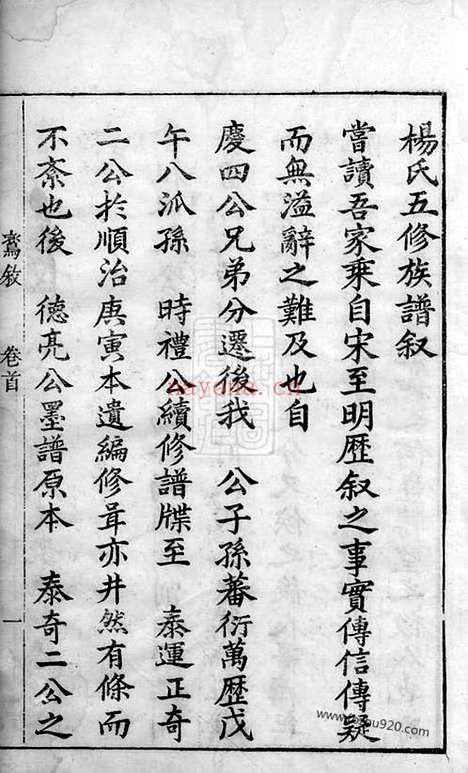 楊氏五修族譜叙
嘗讀吾家乘自宋至明歷叙之事實傳信傳疑
而無溢辭之難及也自
慶四公兄弟分遷後我 公子孫蕃衍萬歷戊
午八派孫 時禮公續修譜牒至 泰運正奇
二公於順治庚寅本遺編修葺亦井然有條而
不紊也後 德亮公墨譜原本 泰奇二公之
舊敘 卷首 一
nayona.cn
www.tobu920.com